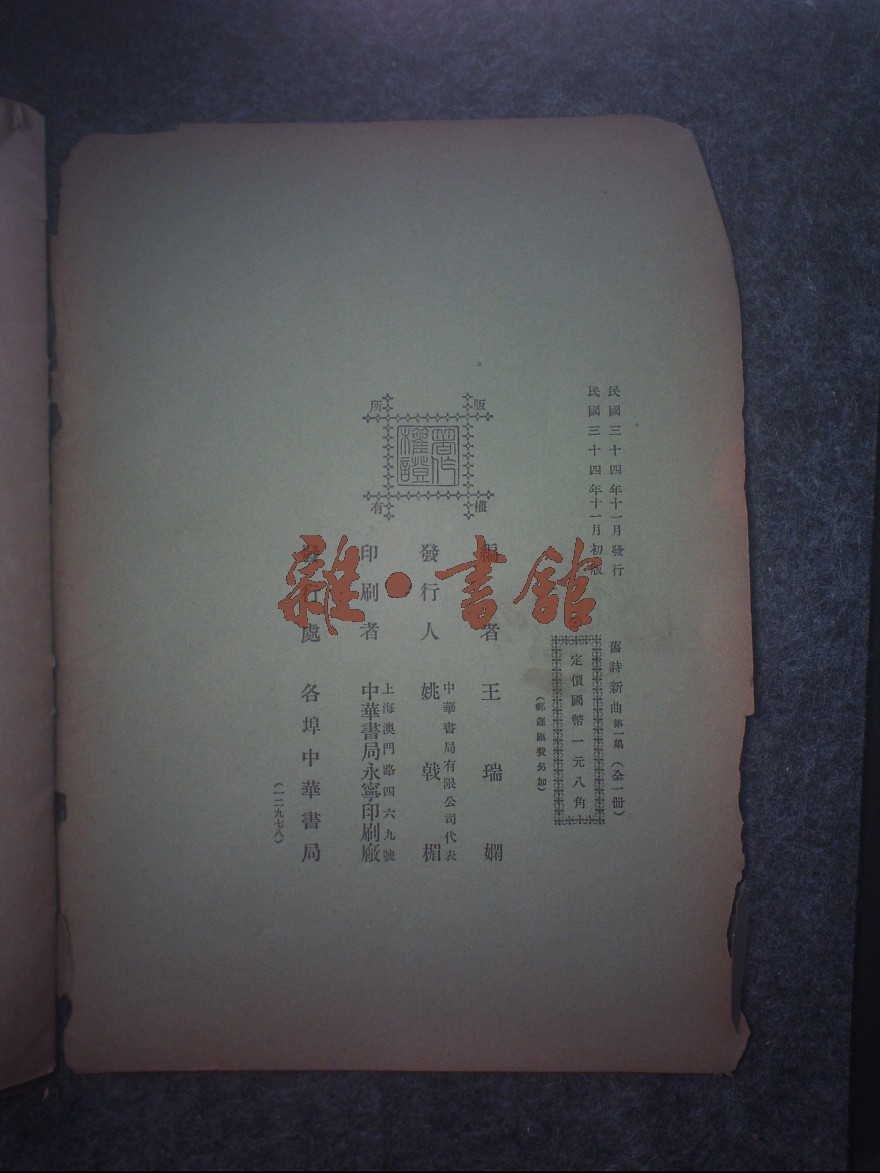 民國三十四年十一月發行
民國三十四年十一月初版
舊詩新曲第一集（全一冊）
定價國幣一元八角
（郵運匯費另加）
版權
所有
著作權證
編者 王瑞嫻
發行人 中華書局有限公司代表
姚戟楣
印刷者 上海澳門路四六九號
中華書局永寧印刷廠
發行處 各埠中華書局
（一二九七八）
雜·書館